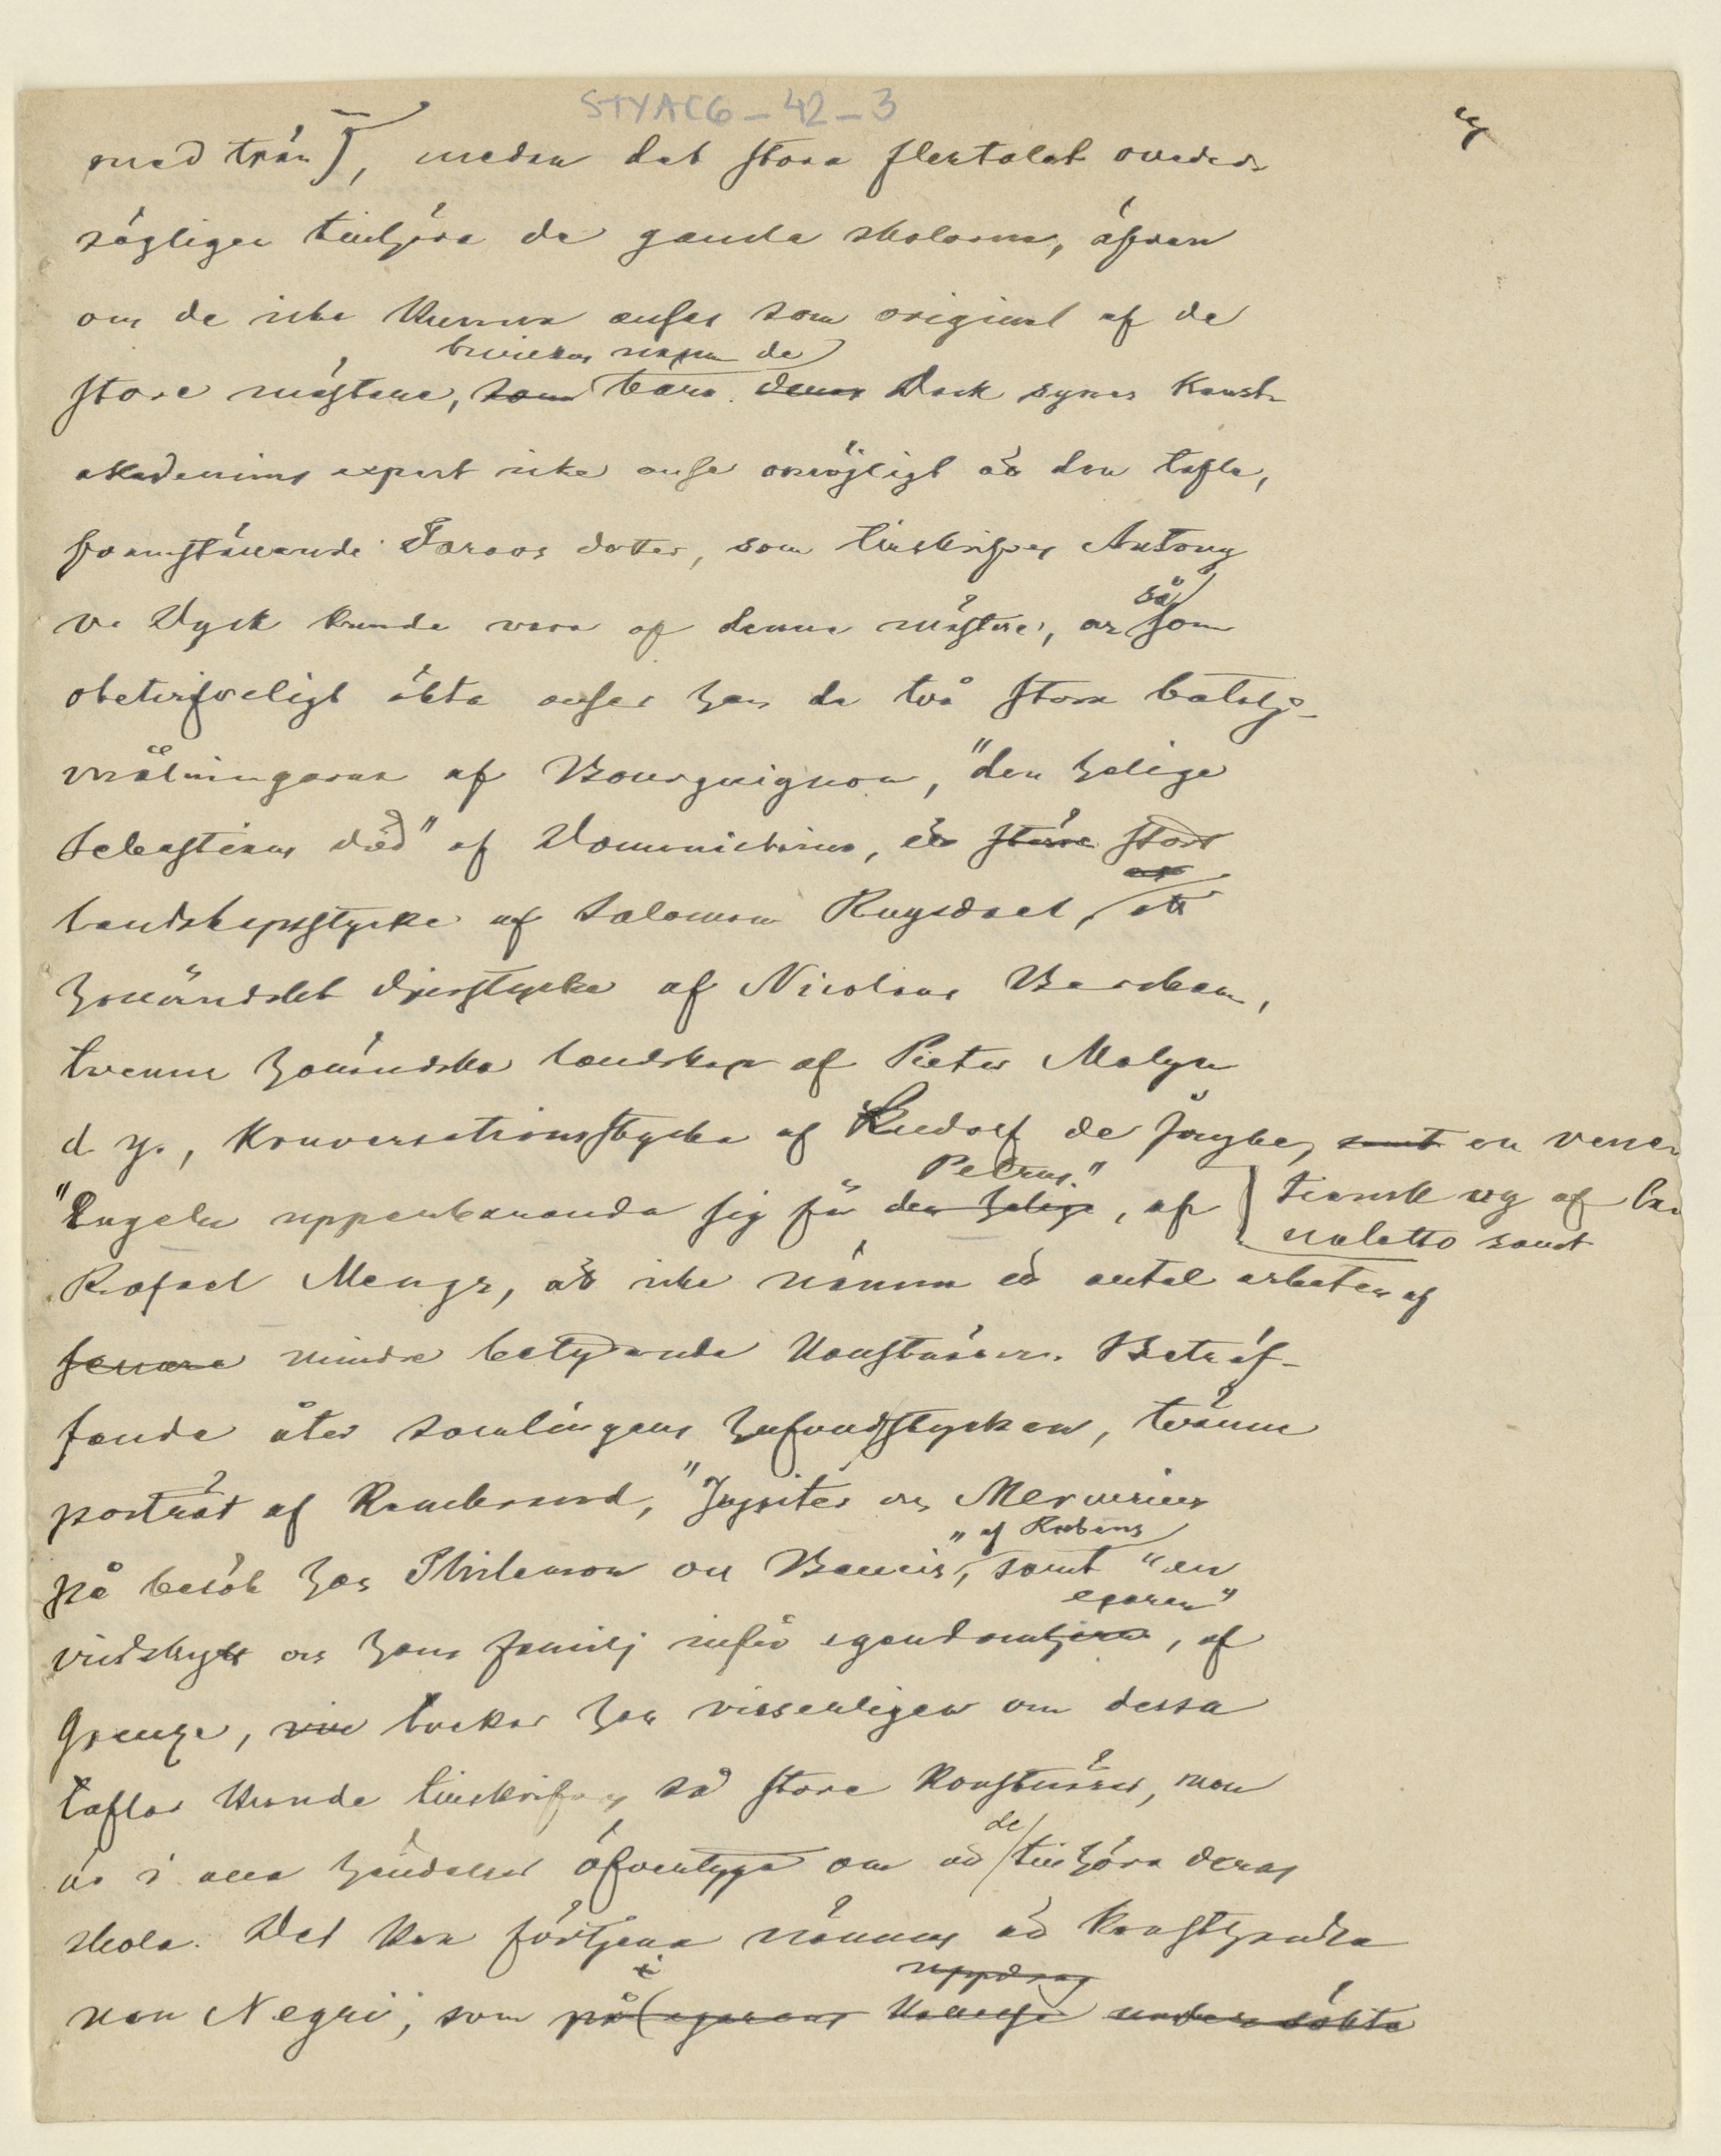 STYAC6-42-3
med trän), medan det stora flertalet oveder-
sägligen tillhöra de gamla skolorna, äfven
om de icke kunna anses som original af de
hvilkas namn de
store mästare, som bära. deras Dock synes Konst-
akademins expert icke anse omöjligt att den tafla,
framställande Faraos dotter, som tillskrifves Antony
v. Dyck kunde vara af denne mästare, och såsom
obetvifveligt äkta anser han de två stora batalj-
målningarna af Bourguignon, "den helige
Sebastians död" af Dominichino, ett större stort
landskapsstycke af Salomon Ruysdael, ett
holländskt djurstycke af Nicolaus Berchem,
tvenne holländska landskap af Pieter Molyn
d. y., Konversationsstycke af Ludolf de Jonghe, samt en vene-
tiansk vy af Ca-
naletto samt
Petrus."
"Engeln uppenbarande sig för den helige, af
Rafael Mengs, att icke nämna ett antal arbeten af
senare mindre betydande konstnärer. Beträf-
fande åter samlingens hufvudstycken, tvänne
porträt af Rembrand, "Jupiter och Mercurius
på besök hos Philemon och Baucis", af Rubens samt "en
egaren"
vildskytt och hans familj inför egendomsherrn, af
Greuze, vill tvekar han visserligen om dessa
taflor kunde tillskrifvas så store konstnärer, men
är i alla händelser öfvertygad om att de tillhöra deras
skola. Det kan förtjena nämnas att konsthandla
ren Negri, som på i egarens uppdrag kallelse undersökte